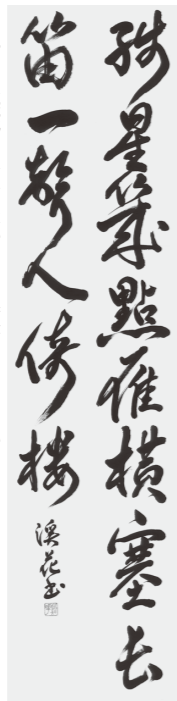 残星幾點雁橫塞長
笛一聲人倚樓
溪花书